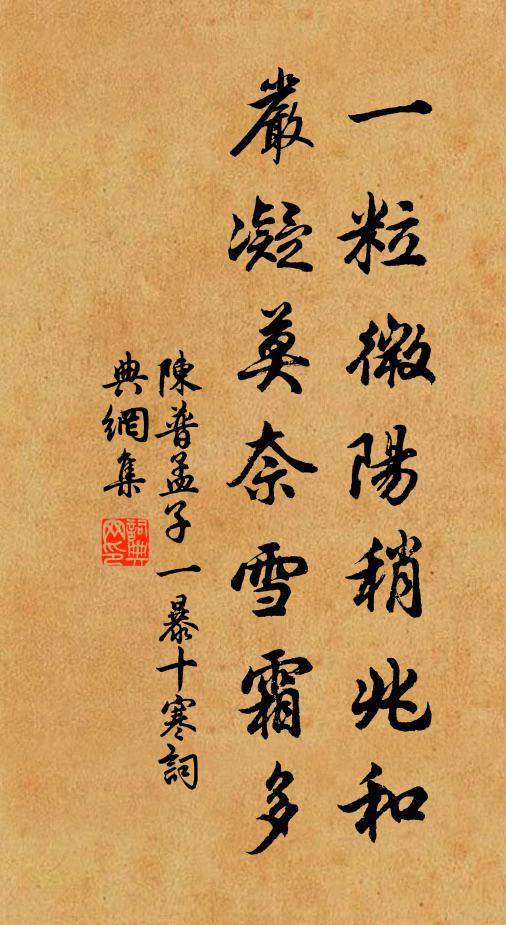 一粒微陽稍兆和
嚴凝莫奈雪霜多
陳普孟子一暴十寒詞
典網集
詞典网印